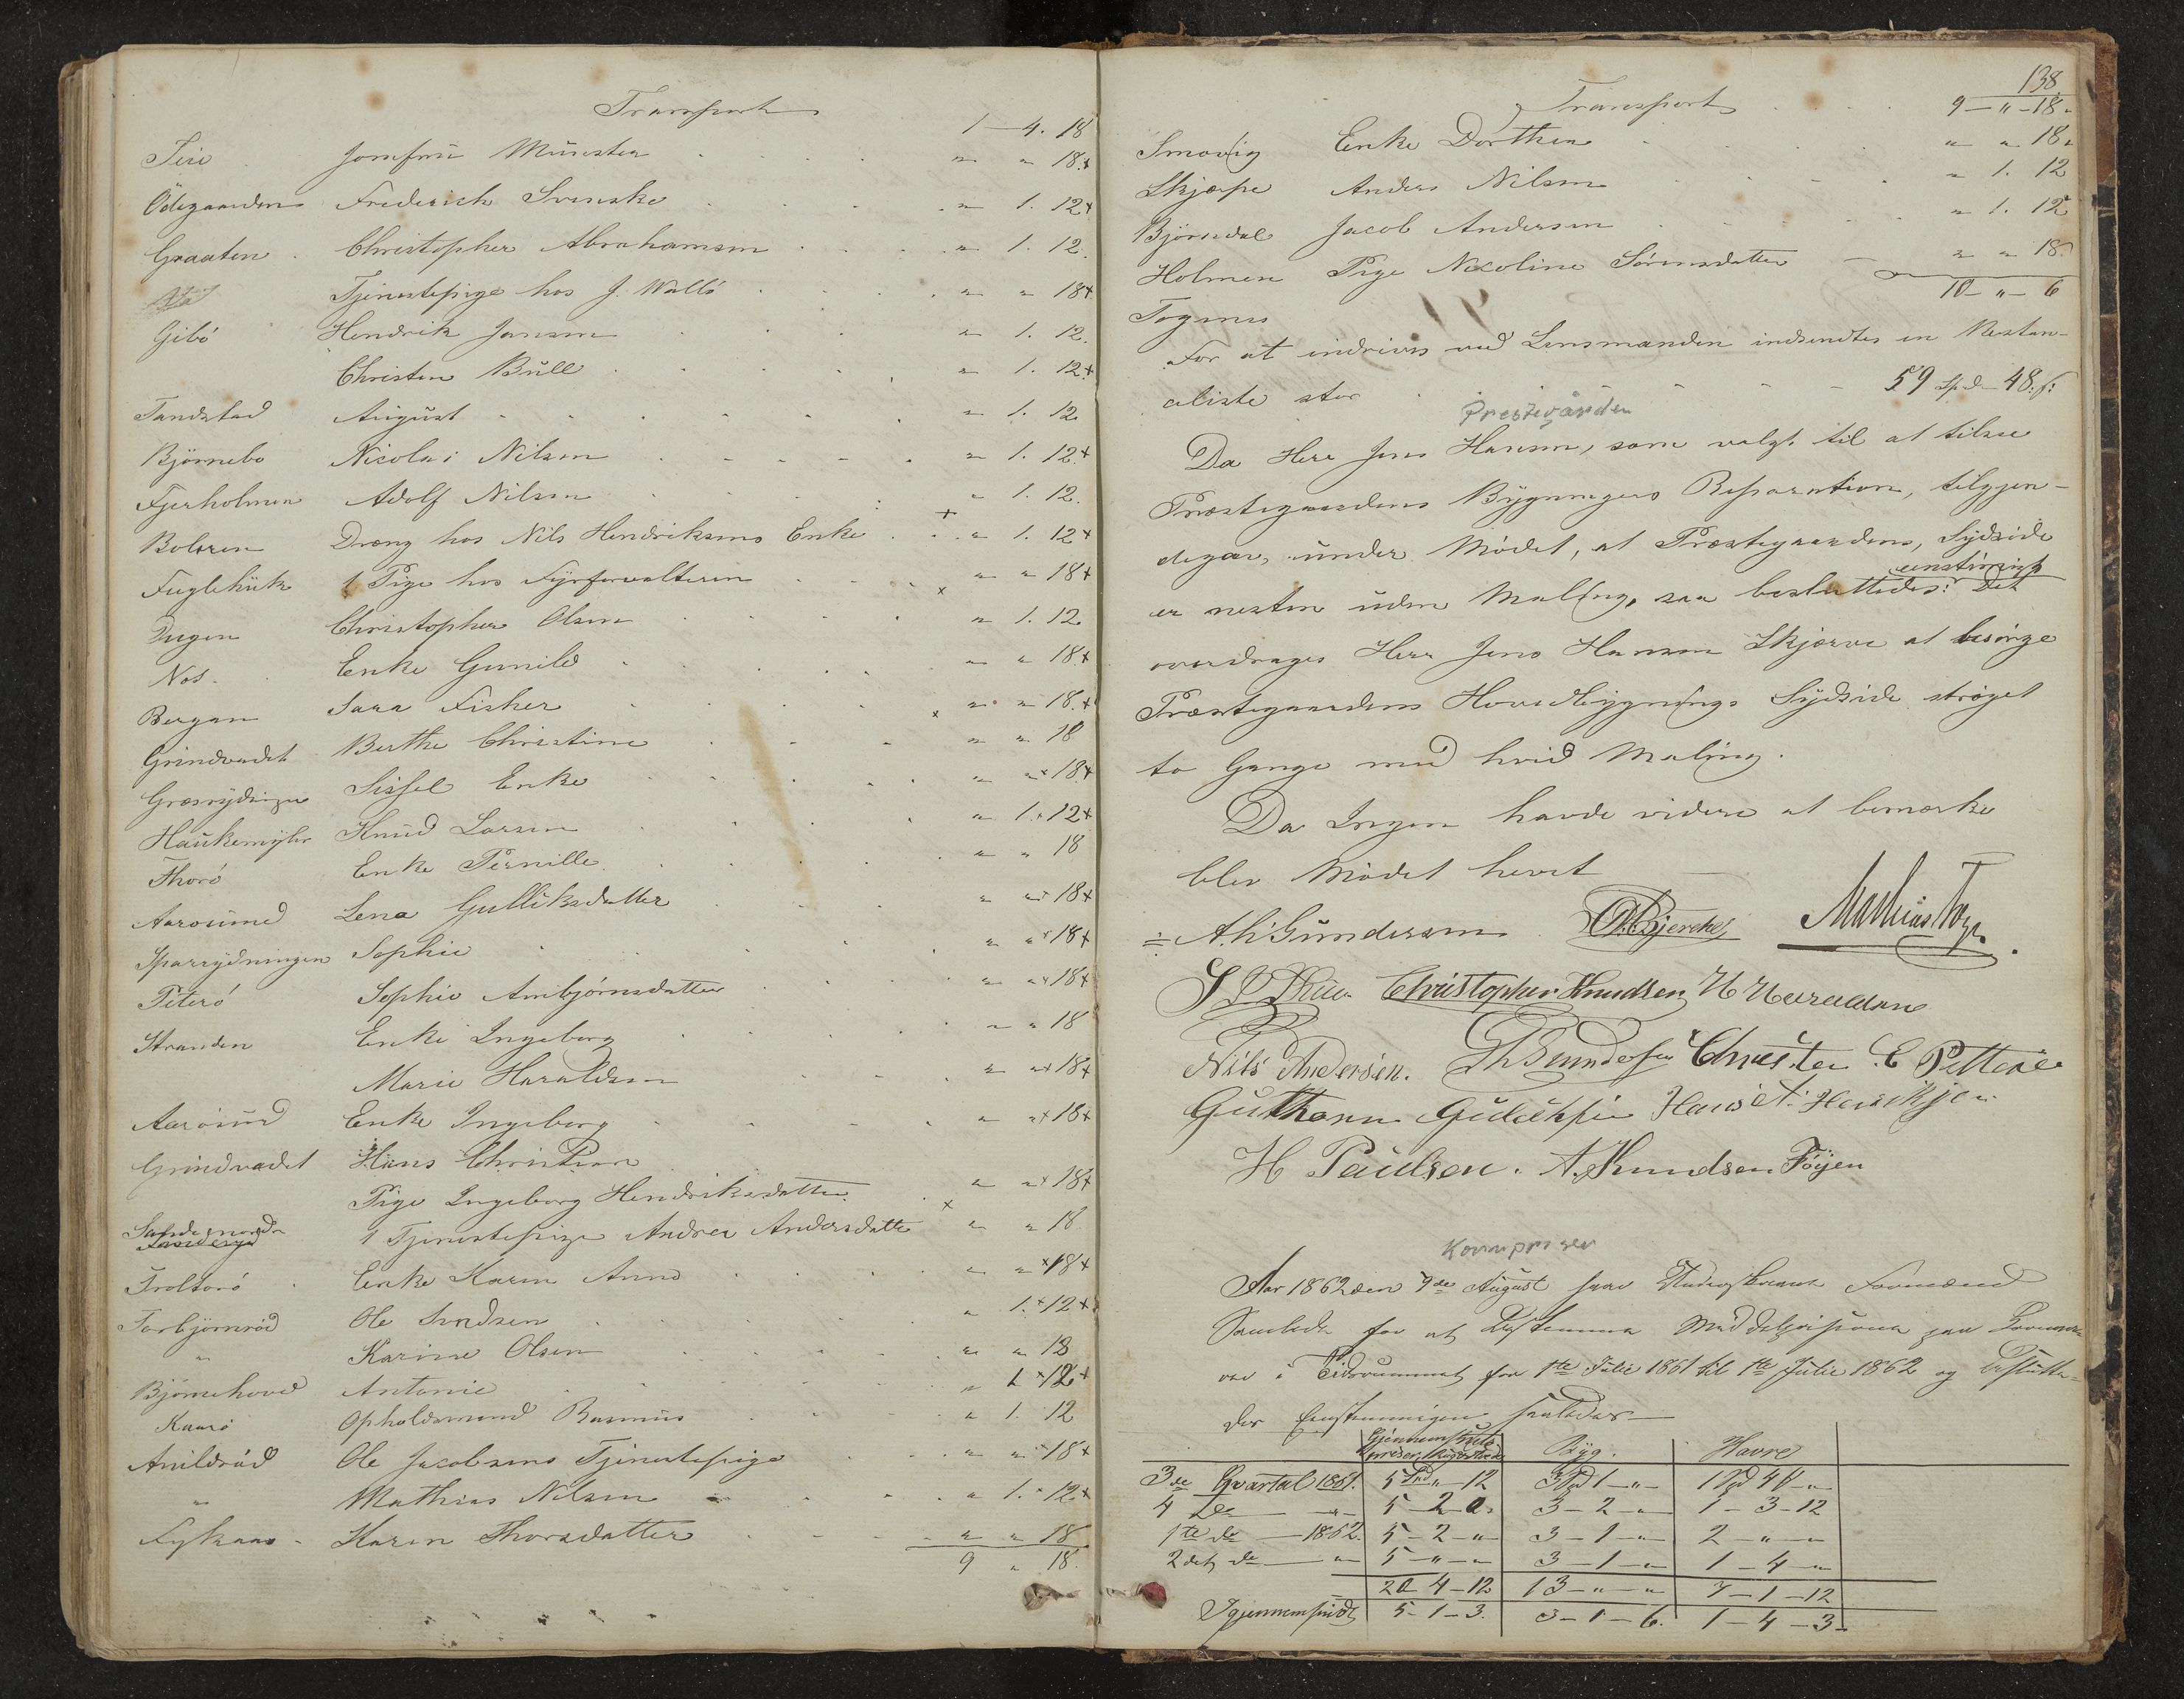 Transport 1 – 4. 18
Jomfru Münster " " 18.+
Ödegaarden Frederich Svenske " 1. 12+
Graaten Christopher Abrahamsen " 1. 12.
Tjenestepige hos J. Wallö " " 18+
Gibö Hendrik Jansen " 1. 12.
Christen Bull " 1. 12+
Tandstad August " 1. 12
Björnebo Nicolai Nilsen " 1. 12+
Fjerholmen Adolf Nilsen " 1. 12.
Bolæren Dreng hos Nils Hendriksens Enke + " 1. 12+
Fuglehuk 1 Pige hos Fyrforvalteren x " " 18+
Christopher Olsen " 1. 12
Nes Enke Gunild " " 18+
Bergan Sara Fisher x " " 18.+
Grindvadet Berthe Christine " " 18
Græsrydningen Sissel Enke " "x 18+
Haukemyhr Knud Larsen " 1.x 12+
Thorö Enke Pernille " " 18
Aarösund Lena Gulliksdatter " "x 18+
Sparrydningen Sophie " "x 18+
Peterö Sophie Arnbjörnsdatter " "x 18+
Stranden Enke Ingeborg " " 18
Marie Haraldsen " "x 18+
Aarösund Enke Ingeborg " "x 18+
Grindvadet Hans Christian
Pige Ingeborg Hendriksdatter " "x 18+
1 Tjenestepige Andrea Andersdatter x " " 18
Troltorö Enke Karen Anne " "x 18+
Torbjörnröd Ole Svendsen " 1.x 12+
" Karine Olsen " " 18
Björnehoved Antonie " 1 x 12+
Kaarö Opholdsmand Rasmus " 1. 12
Anildröd Ole Jacobsens Tjenestepige " "x 18+
" Mathias Nilsen " 1.x 12+
Karen Thorsdatter " " 18
9 " 18.
138.
Transport 9 – " – 18.
Smovig Enke Dorthea " " 18.
Skjærpe Anders Nilsen " 1. 12
Björndal Jacob Andersen " 1. 12
Holmen Pige Nicoline Sörensdatter " " 18.
10 – " – 6
For at indrives ved Lensmanden indsendtes en Restan-
celiste stor 59 Spd – 48 s:
Prestegården
Da Herr Jens Hansen, som valgt til at tilsee
Præstegaardens Bygningers Reparation, tilkjen-
degav, under Mödet, at Præstegaardens, Sydside
er nesten uden Maling, saa besluttedes: eenstemmigt Det
overdrages Herr Jens Hansen Skjærve at besörge
Præstegaardens Hovedbygnings Sydside ströget
to Gange med hvid Maling.
Da Ingen havde videre at bemærke
blev Mödet hævet
A. h. Gundersen Bjerche Mathias Foyn
Christopher Knudsen H Haraldsen
Nils Andersen. Gundersen Christen E Petterse
Guttorm Gulichsen Hans A. Henrikse
H Paulsen. A. Knudsen Föÿen
Kornpriser
Aar 1862 den 9de August have Undertegnede Formænd
Samlede for at bestemme Middelpriserne paa Kornva-
rer i Tidsrummet fra 1te Julie 1861 til 1te Julie 1862 og besluttedes
der Eenstemmigen saaledes
Gjennemsnits
Byg. Havre
3de Qvartal 1861. 5 Spd " – 12 3 Spd 1 – " – 1 Spd 4 " – "
4 do – " – 5 – 2 – 0. 3 – 2 – " 1 – 3 – 12
1te do – 1862. 5 – 2 – " 3 – 1 – " 2 – " – "
2det do – " 5 – " – " 3 – 1 – " 1 – 4 – "
20 4 – 12 13 – " – " 7 – 1 – 12
Igjennemsnit 5 – 1 – 3. 3 – 1 – 6. 1 – 4 – 3